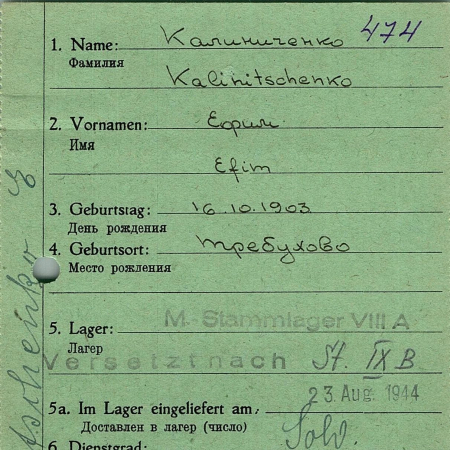 474
1. Name: Калиниченко
Фамилия
Kalinitschenko
2. Vornamen: Ефим
Имя
Efim
3. Geburtstag: 16.10.1903
День рождения
4. Geburtsort: Требухово
Место рождения
M.-Stammlager VIII A
5. Lager:
Лагер
Versetzt nach St. IX B
23. Aug. 1944
5a. Im Lager eingeliefert am:
Доставлен в лагер (число)
Sold.
6. Dienstgrad: